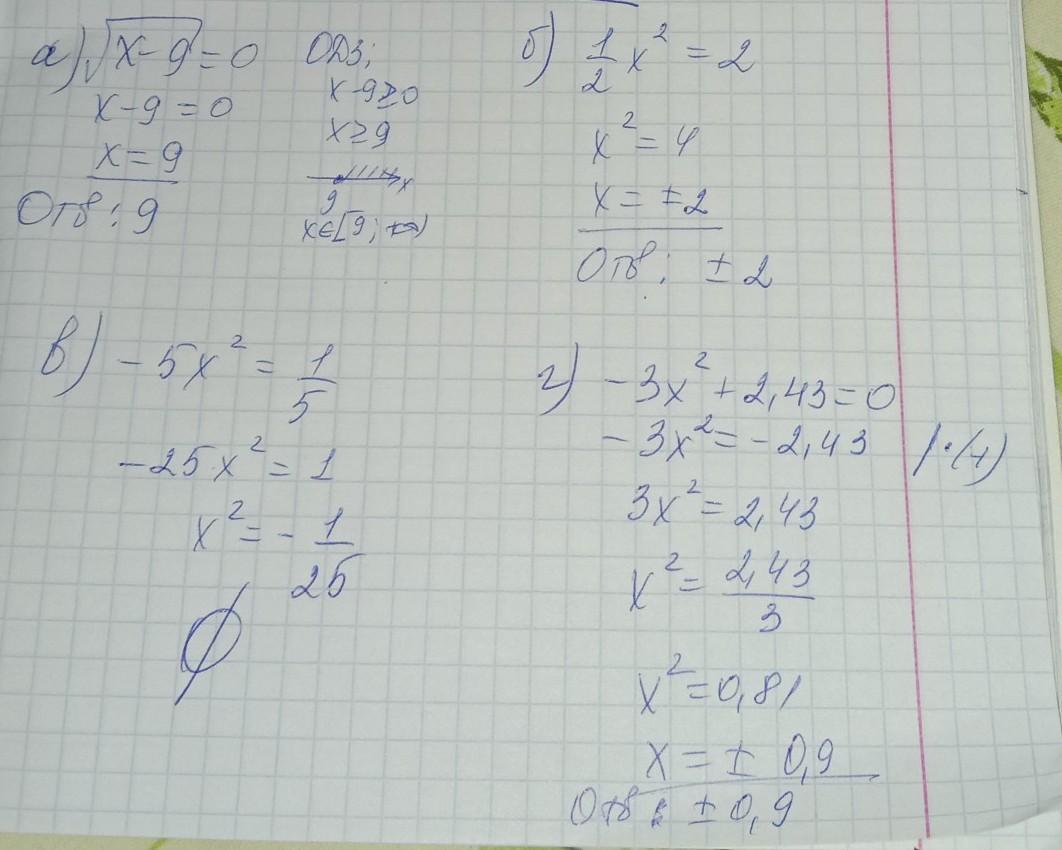 а) √x-9 = 0
x-9 = 0
x = 9
Отв: 9
ОДЗ;
x-9≥0
x≥9
x
9
x∈[9; +∞)
б) 1/2 x² = 2
x² = 4
x = ±2
Отв; ±2
в) -5x² = 1/5
-25x² = 1
x² = - 1/25
∅
г) -3x² + 2,43 = 0
-3x² = -2,43 /·(-1)
3x² = 2,43
x² = 2,43/3
x² = 0,81
x = ± 0,9
Отв: ±0,9